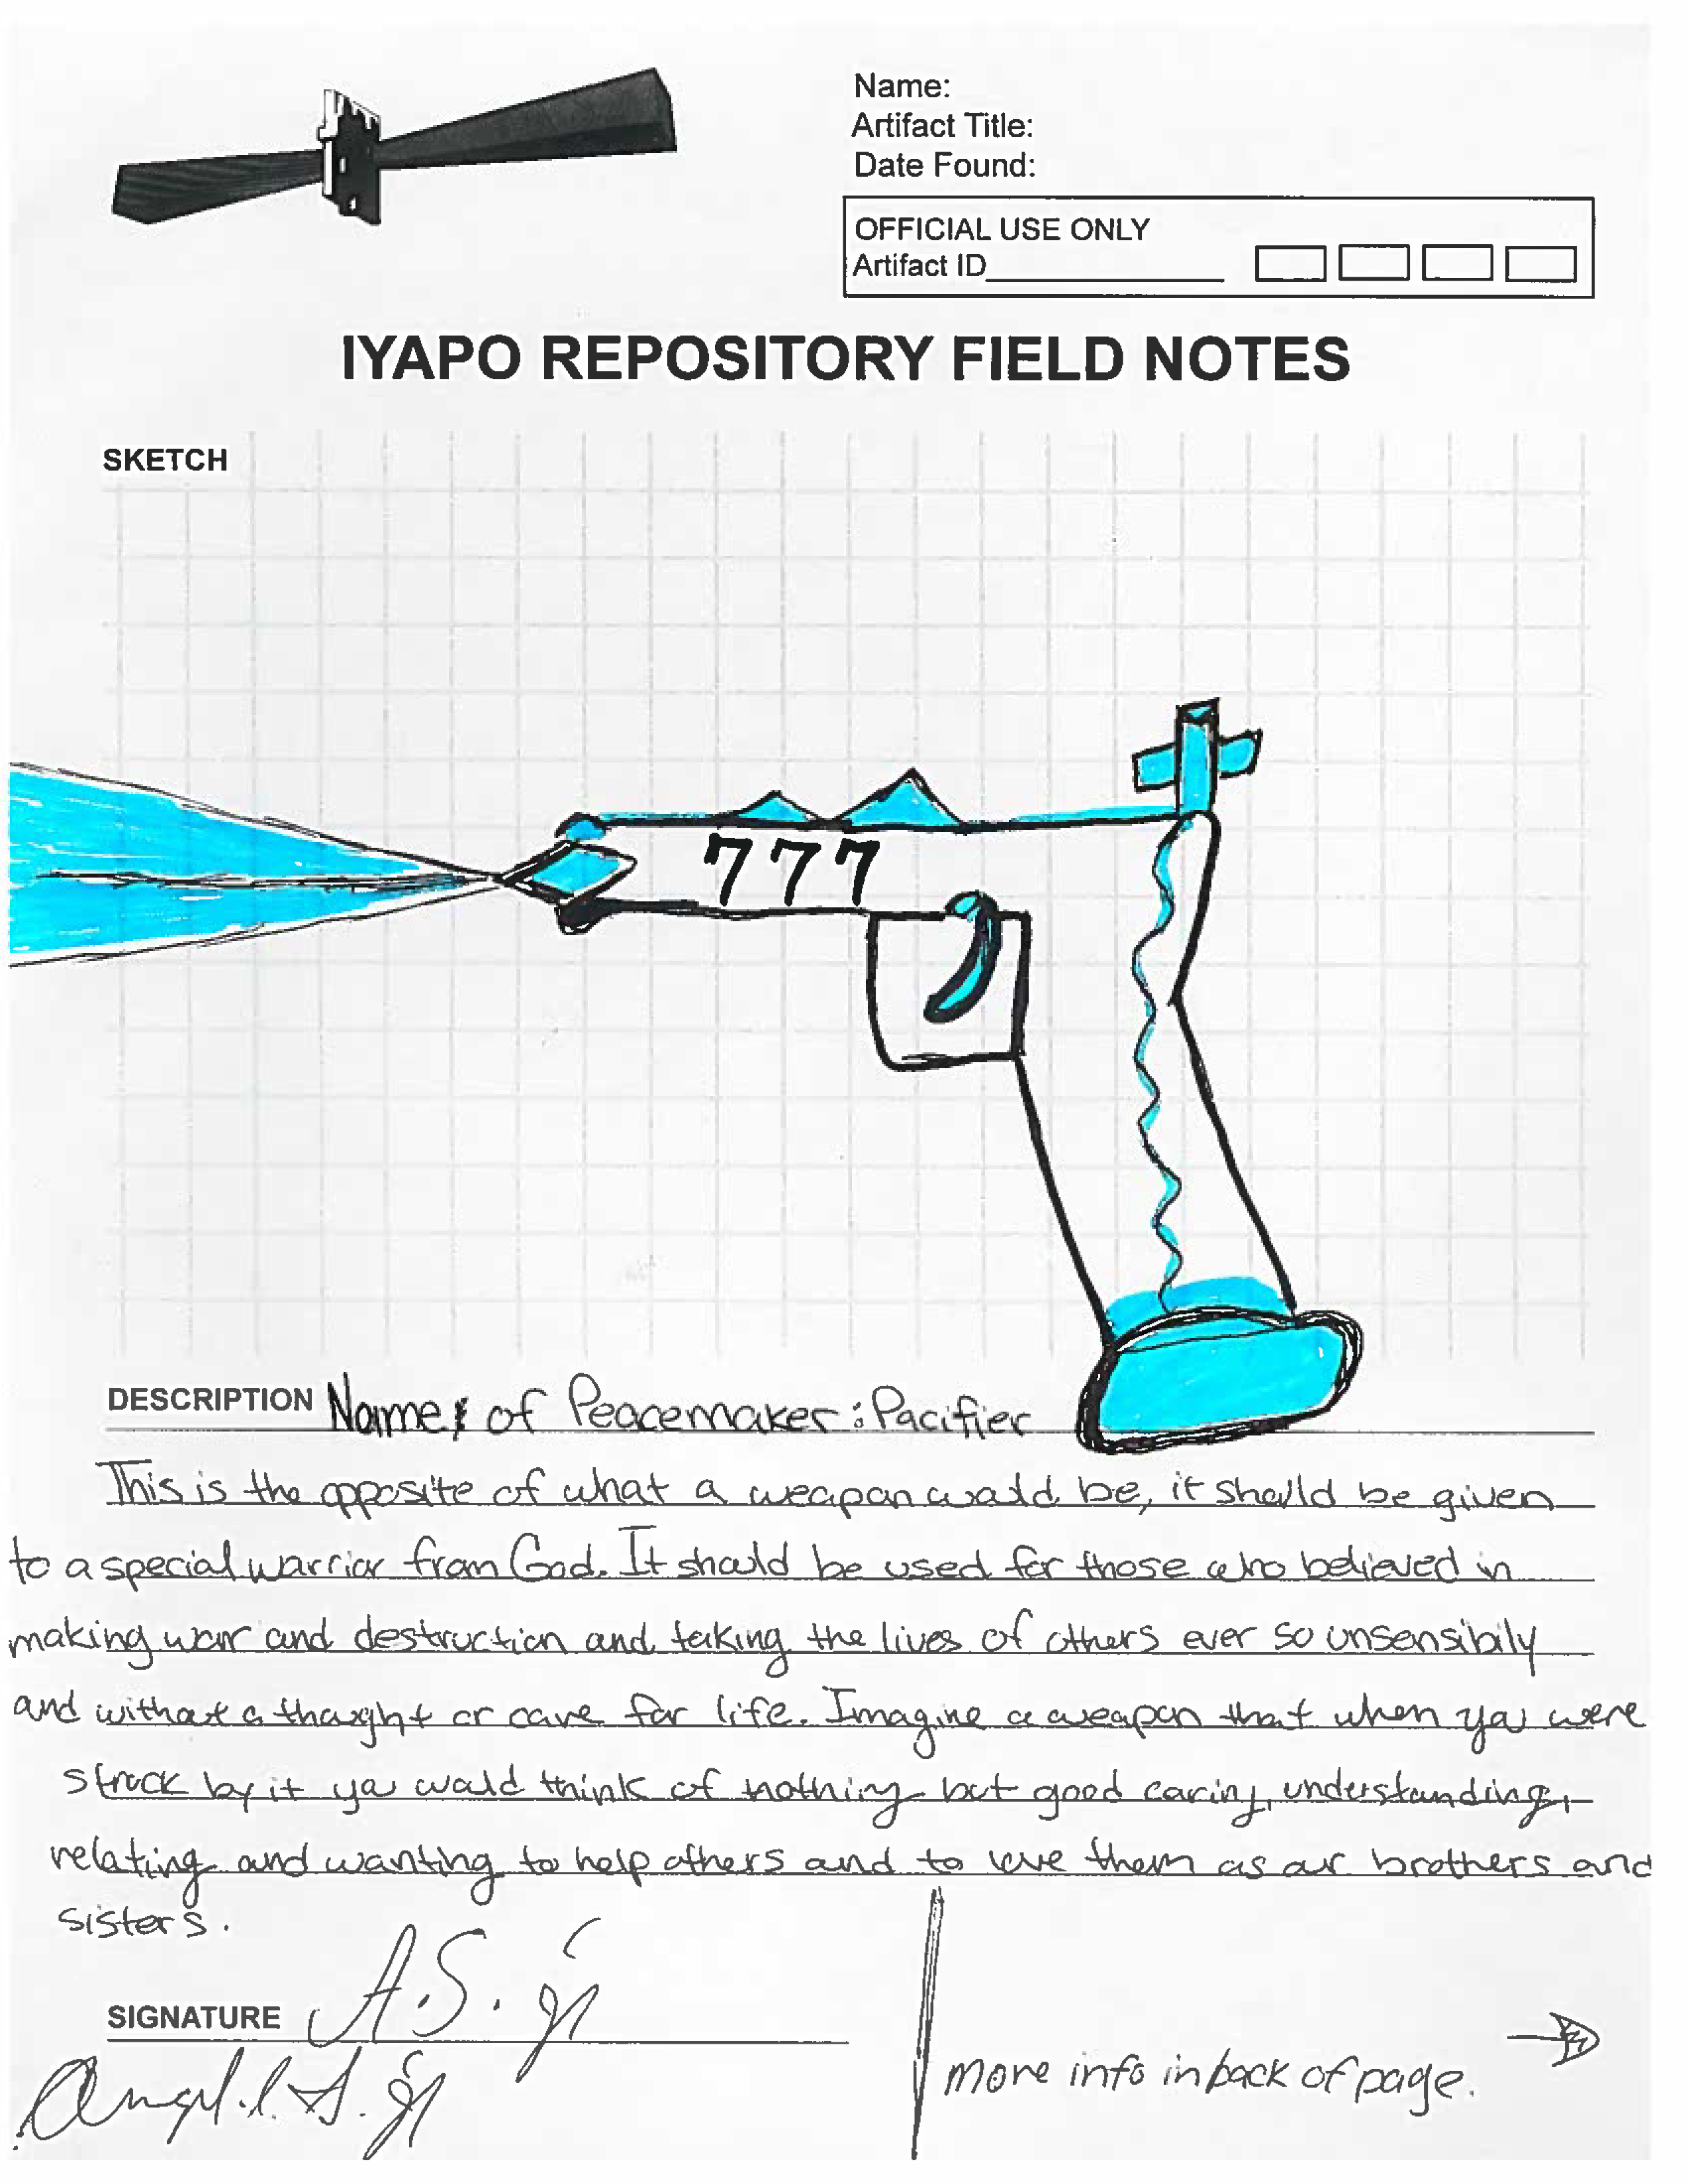 Name:
Artifact Title:
Date Found:
OFFICIAL USE ONLY
Artifact ID
IYAPO REPOSITORY FIELD NOTES
SKETCH
777
DESCRIPTION Name of Peacemaker: Pacifier
This is the opposite of what a weapon would be, it should be given
to a special warrior from God. It should be used for those who believed in
making war and destruction and taking the lives of others ever so unsensibily
and without a thought or care for life. Imagine a weapon that when you were
struck by it you would think of nothing but good caring, understanding,
relating and wanting to help others and to love them as our brothers and
sisters.
SIGNATURE A.S. Jr
more info in back of page.